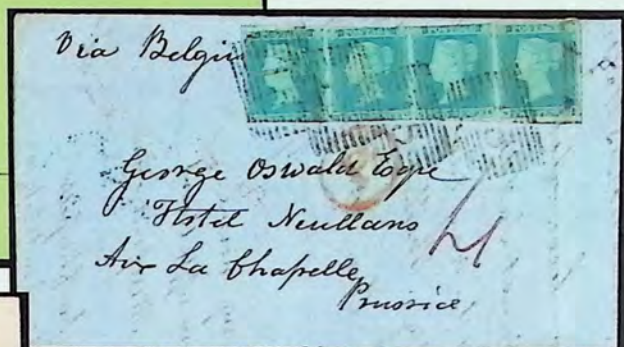 Via Belgiu
George Oswald Esqre
Hotel Neullans
Aix La Chapelle
Prussia